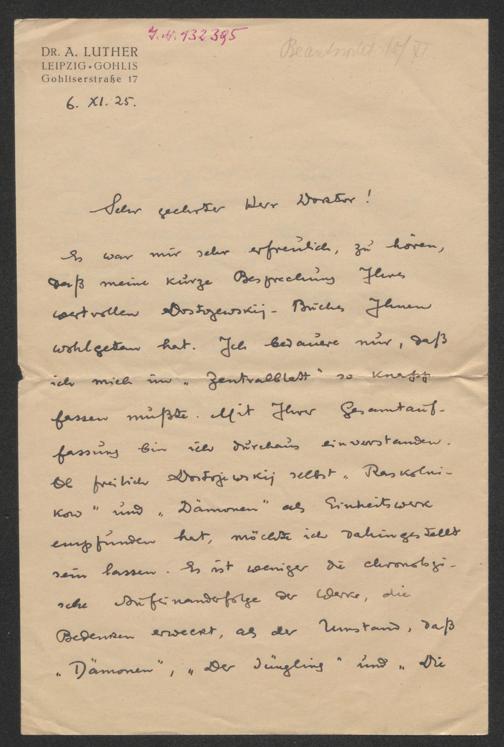 J.N. 132395
Beantwortet 12/XI
DR. A. LUTHER
LEIPZIG-GOHLIS
Gohliserstraße 17
6. XI. 25.
Sehr geehrter Herr Doktor!
Es war mir sehr erfreulich, zu hören,
daß meine kurze Besprechung Ihres
wertvollen Dostojewskij-Buches Ihnen
wohlgetan hat. Ich bedauere nur, daß
ich mich im „Zentralblatt" so knapp
fassen mußte. Mit Ihrer Gesamtauf-
fassung bin ich durchaus einverstanden.
Ob freilich Dostojewskij selbst „Raskolni-
kow" und „Dämonen" als Einheitswerk
empfunden hat, möchte ich dahingestellt
sein lassen. Es ist weniger die chronologi-
sche Aufeinanderfolge der Werke, die
Bedenken erweckt, als der Umstand, daß
„Dämonen", „Der Jüngling" und „Die